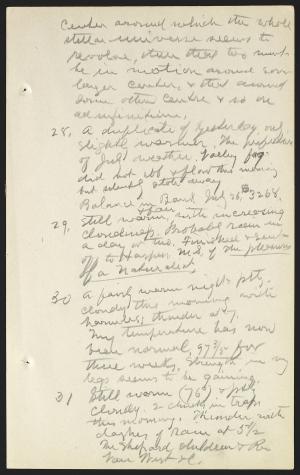 center around which the whole
stellar universe seems to
revolve, then that too must
be in motion around some
larger center, & that around
some other centre & so on
ad infinitum.
28. A duplicate of yesterday, only
slightly warmer. The perfection
of July weather. Valley fog
did not ebb & flow this morning
but silently stole away
Balance in Bank July 26, $3268.
29. Still warm, with increasing
cloudiness. Probably rain in
a day or two. Finished & sent
off to Harpers, M.S. of The pleasures
of a Naturalist.
30 A fair, warm night, ptly
cloudy this morning with
warmer; thunder at 7.
My temperature has now
been normal, 97 3/5 for
three weeks. Strength in my
legs seems to be gaining.
31 Still warm (76°) & ptly
cloudy. 2 chucks in traps
this morning. Thunder with
dashes of rain at 5 1/2
The Shepard children &